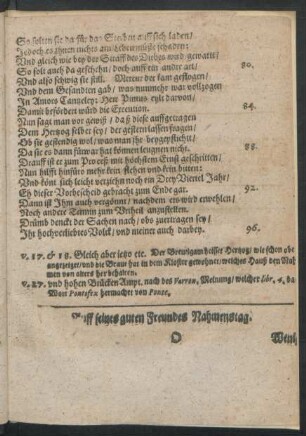 So solten sie da für das Sünden auff sich laden/
Jedoch es ihnen nichts am Leben müste schaden:
Und gleich wie bey der Straff des Diebes wird gewalt/
So solt auch da geschehn/ doch auff ein ander art/ 80.
Und also schwig sie still. Mercur der kam geflogen/
Und dem Gesandten gab/ was nunmehr war vollzogen
In Amors Cantzeley: Herr Pimus eylt darvon/
Damit befördert würd die Execution. 84.
Nun sagt man vor gewiß/ daß diese auffgetragen
Dem Hertzog selbst sey/ der gestern lassen fragen/
Ob sie geständig wol/ was man ihr beygepflicht/
Da sie es dann fürwar hat können leugnen nicht. 88.
Drauff ist er zum Process mit höchstem Ernst geschritten/
Nun hilfft hinfüro mehr kein stehen und kein bitten:
Und könt sich leicht verziehn noch ein Drey Viertel Jahr/
Eh dieser Vorbescheid gebracht zum Ende gar. 92.
Dann ist Ihm auch vergönnt/ nachdem ers wird erwehlen/
Noch andere Stimm zum Urtheil anzustellen.
Drümb denckt der Sachen nach/ obs zuertragen sey/
Ihr hochverliebtes Volck/ und meiner auch darbey. 96.
v. 17. & 18. Gleich aber ietzo etc. Der Breutigam heisset Hertzog/ wie schon oben
angezeiget/ und die Braut hat in dem Kloster gewohnet/ welches Hauß den Nah-
men von alters her behalten.
v. 27. und hohen Brücken Ampt. nach des Varron. Meinung/ welcher lib. 4. da
Wort Pontifex hermachet von Ponte.
Auff seines guten Freundes Nahmenstag.
O